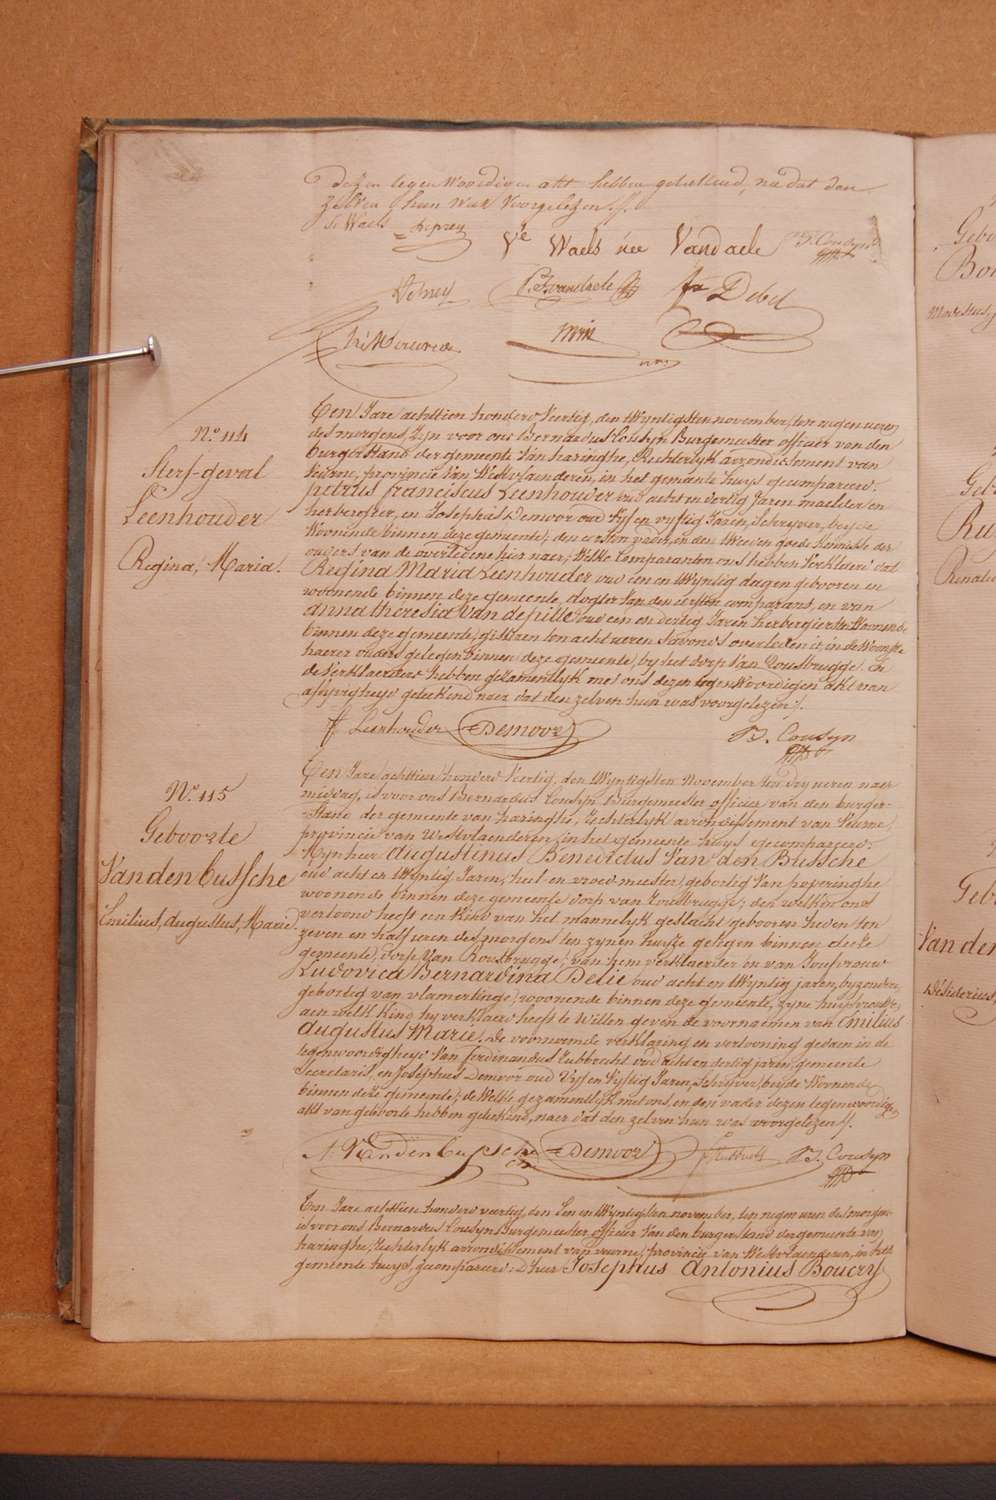 dezen tegenwoordigen akt hebben geteekend, na dat den
zelven hun was voorgelezen ./.
De Waels Deprey
Ve Waels née Vandaele
B. J. Cousyn
Debel
N.o 114
Sterf-geval
Leenhouder
Regina, Maria.
Een Jare achttien honderd veertig, den twyntigsten november, ten negen uren
des morgens, Zyn voor ons Bernardus Cousyn Burgemeester officier van den
burgerstand der gemeente Van haringhe, Rechterlyk arrondissement van
veurne, provincie Van Westvlaenderen, in het gemeente huys gecompareerd:
petrus franciscus Leenhouder oud acht en dertig Jaren maelder en
herbergier, en Josephus Demoor oud Vyf en vyftig Jaren, Schryver, beyde
Woonende binnen deze gemeente, den eersten vader, en den tweeden goede kennisse der
ouders van de overledene hier naer; Welke Comparanten ons hebben Verklaerd dat
Regina Maria Leenhouder oud een en twyntig dagen gebooren en
woonende binnen deze gemeente, dogter Van den eersten comparant, en van
anna theresia Van depitte oud een en dertig Jaren herbergierster Woonende
binnen deze gemeente, gisteren ten acht ueren S'avonds overleden is, in de Woonste
haerer ouders gelegen binnen deze gemeente, by het dorp Van Rousbrugge. En
de Verklaerders hebben gezamentlyk met ons dezen tegenwoordigen akt van
afsterven geteekend naer dat den zelven hun was voorgelezen ./.
f Leenhouder Demoor B. J. Cousyn
N.o 115
Geboorte
Vanden bussche
Emilius, augustus, Marie.
Een Jare achttien honderd Veertig, den twyntigsten November ten dry ueren naer
middag, is voor ons Bernardus Cousyn Burgemeester officier van den burger-
stand der gemeente van haringhe, Rechterlyk arrondissement van Veurne,
provincie van Westvlaenderen, in het gemeente huys gecompareerd:
Mynheer augustinus Benedictus Van den Bussche
oud acht en twyntig Jaren, heel en vroedmeester, gebortig Van poperinghe
woonende binnen deze gemeente dorp van Rousbrugge; den welken ons
vertoond heeft een kind van het mannelyk geslacht gebooren heden ten
zeven en half ueren des morgens ten zynen huyze gelegen binnen deeze
gemeente, dorp Van Rousbrugge, van hem verklaerder en van Joufvrouw
Ludovica Bernardina Delie oud acht en twyntig jaren, byzondere,
gebortig van vlamertinge, woonende binnen deze gemeente, zyne huysvrouwe,
aen welk kind hy verklaerd heeft te Willen geven de voornaemen van Emilius
Augustus Marie, de voornoemde verklaring en vertooning gedaen in de
tegenwoordigheyd Van ferdinandus Lubbrecht oud acht en dertig jaren, gemeente
Secretaris, en Josephus Demoor oud Vyf en Vyftig Jaren, Schryver, beyde Woonende
binnen deze gemeente; de Welke gezamentlyk met ons, en den vader dezen tegenwoordigen
akt van geboorte hebben geteekend, naer dat den zelven hun was voorgelezen ./.
A. Vanden bussche Demoor B. J. Cousyn
Een Jare achttien honderd veertig, den Een en twyntigsten november, ten negen uren des morgens
is voor ons Bernardus Cousyn Burgemeester, officier Van den burgerstand der gemeente van
haringhe, Rechterlyk arrondissement van veurne, provincie van Westvlaenderen, in het
gemeente huys, gecompareerd: D'heer Josephus Antonius Boucry
Gebo
Van den
Desiderius,